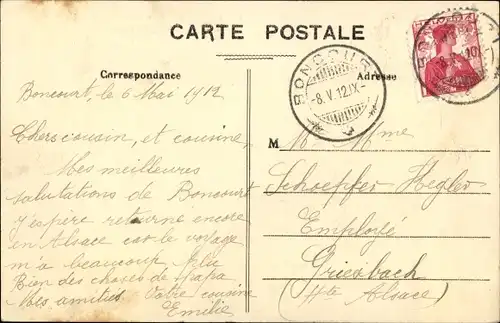 CARTE POSTALE
Correspondance
Adresse
BONCOURT
-8.V.12.IX-
Boncourt, le 6 Mai 1912
Chers cousin, et cousine,
Mes meilleures
salutations de Boncourt
j'espère retourne encore
en Alsace car le voyage
m'a beaucoup plu
Bien des choses de Papa
Mes amitiés. Votre cousine
Emilie
M Mme
Schoepfer Hegler
Employé
Griesbach
(Hte Alsace)